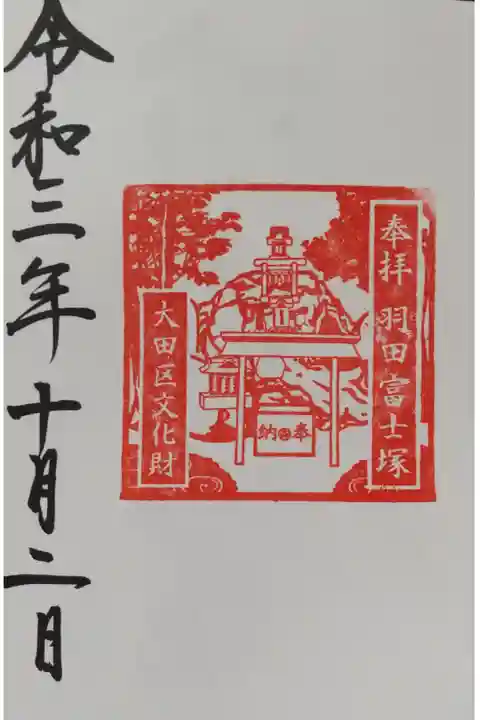 奉拝 羽田富士塚
奉納
大田区文化財
令和三年十月二日